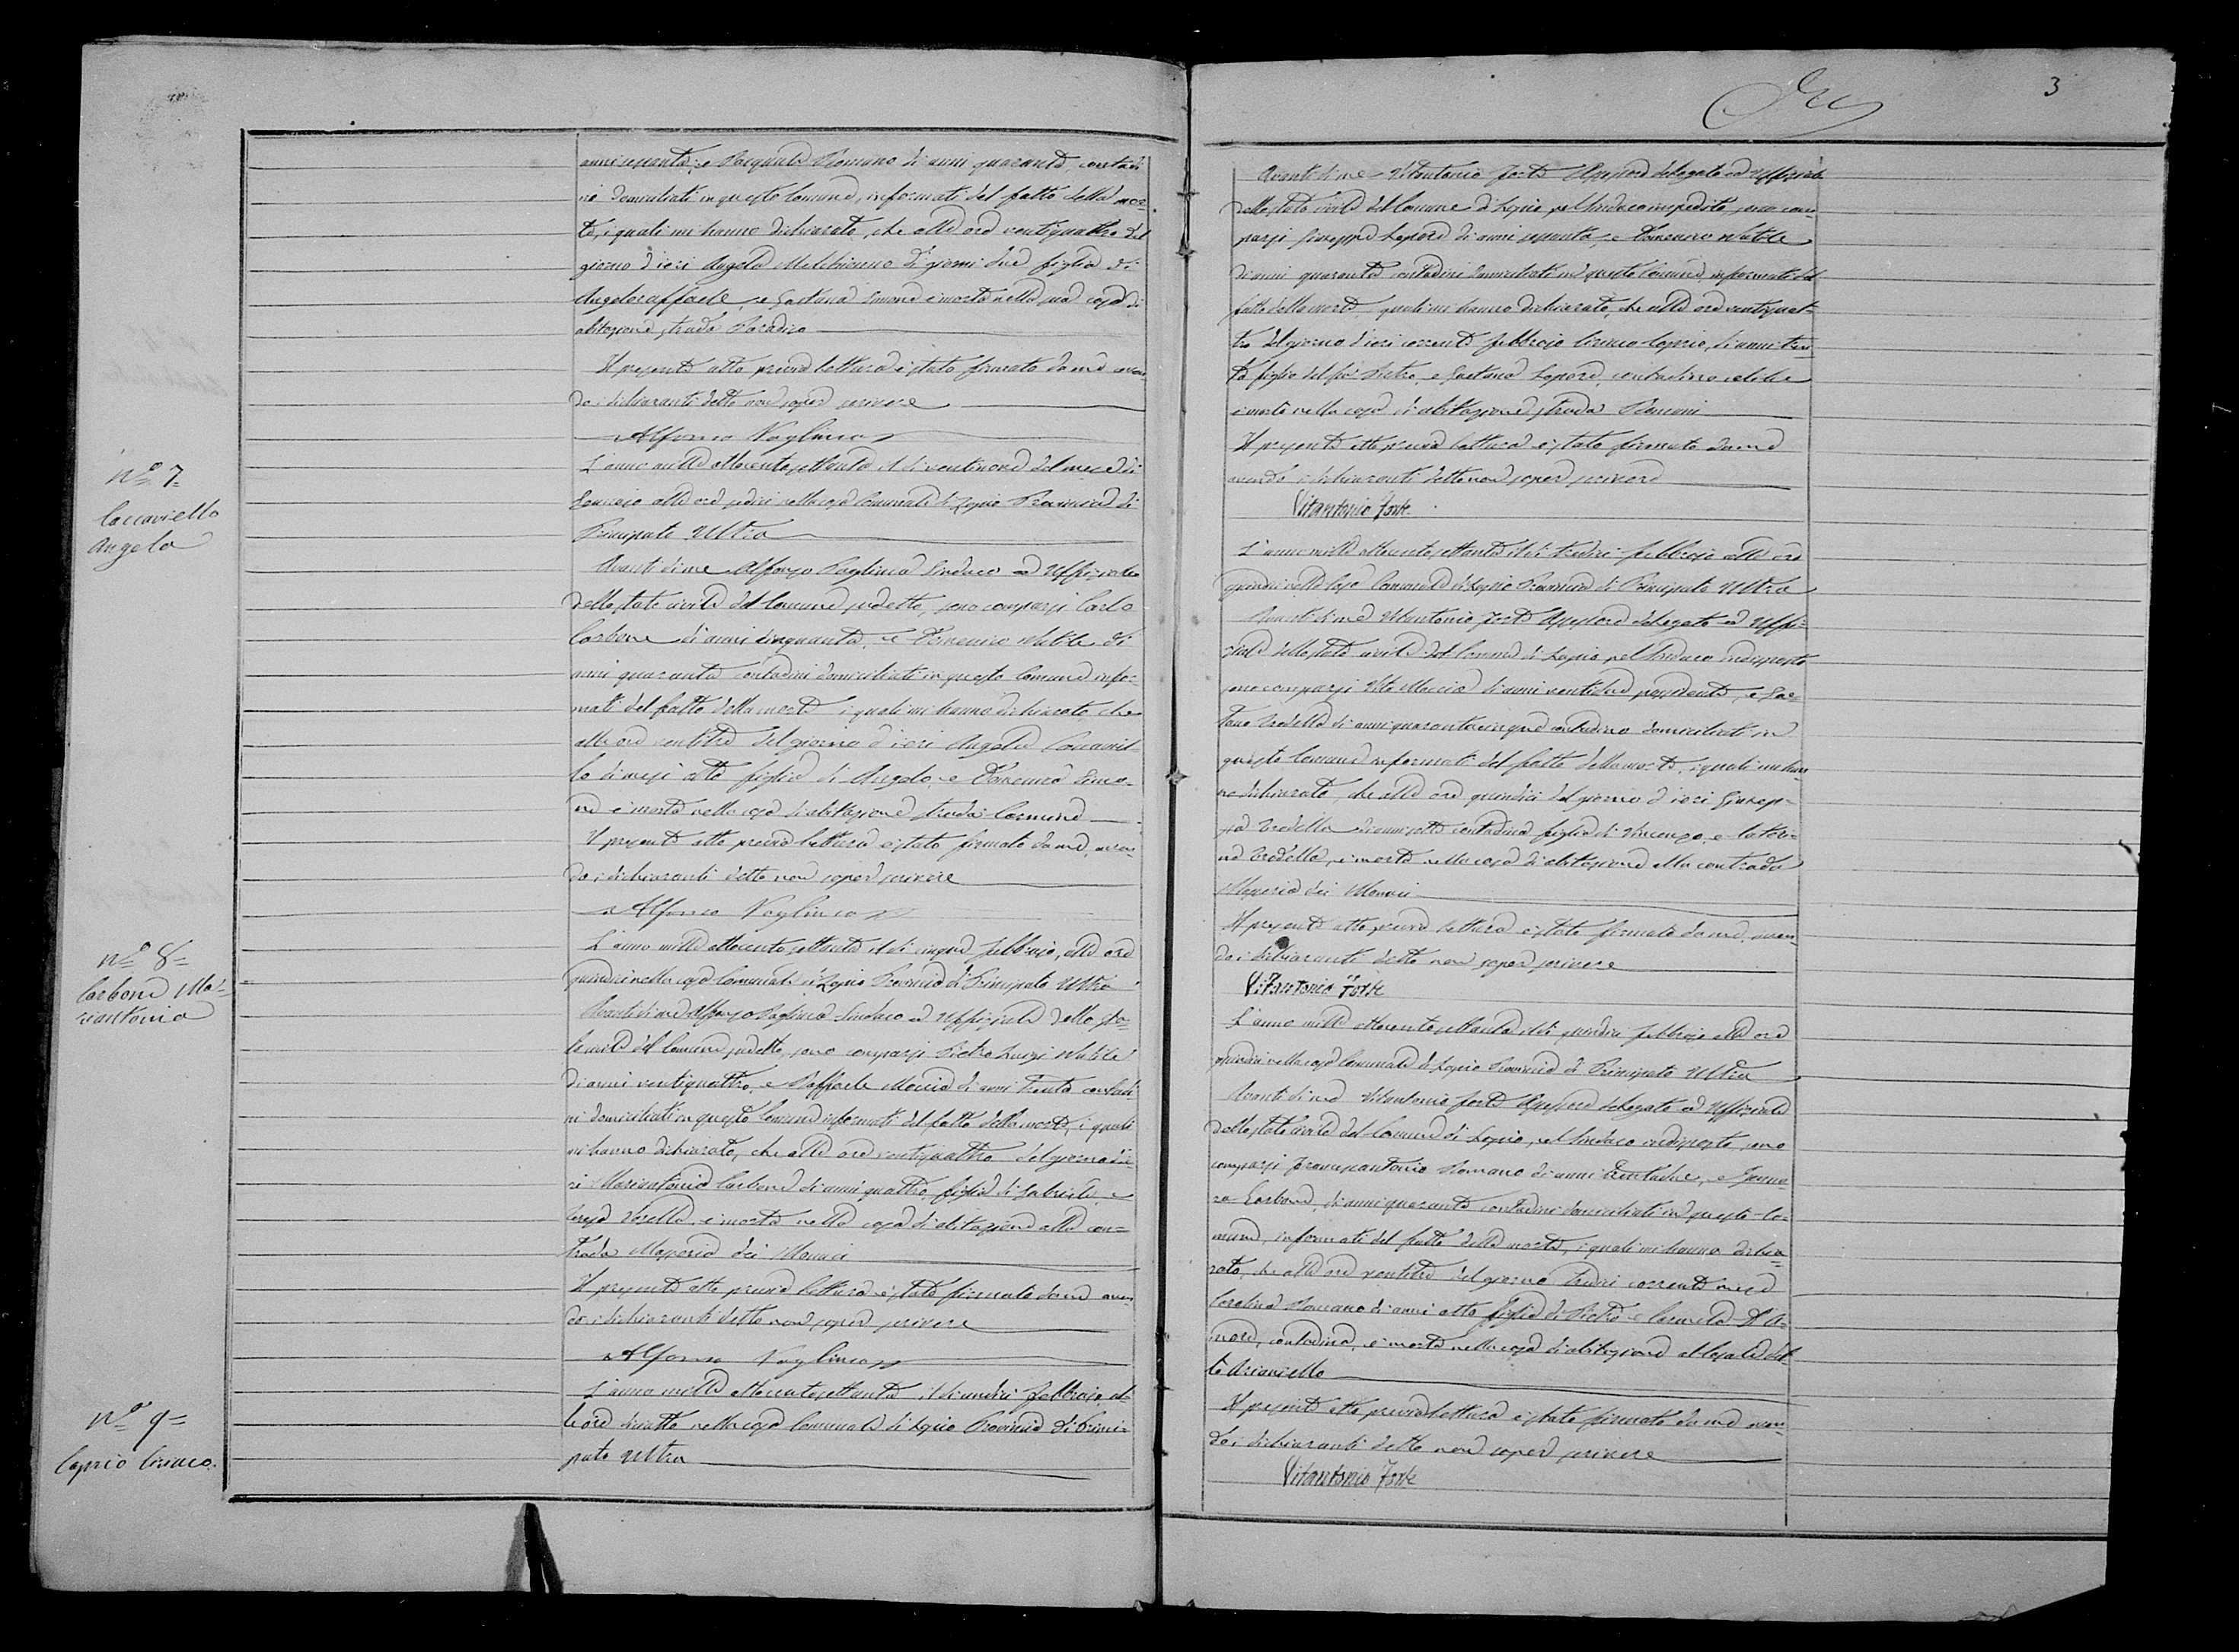 anni sessanta, e Pasquale Romano di anni quaranta, contadi
ni domiciliati in questo Comune, informati del fatto della mor-
te, i quali mi hanno dichiarato, che alle ore ventiquattro del
giorno d'ieri Angela Melchionno di giorni due figlia di
Angeloraffaele, e Gaetana Simone è morta nella sua casa di
abitazione strada Paradiso
Il presente atto previa lettura è stato firmato da me aven
do i dichiaranti detto non saper scrivere
Alfonso Vogliuca
Nº 7
Caccaviello
Angela
L'anno mille ottocento settanta il dì ventinove del mese di
Gennaio alle ore sedici nella casa Comunale di Lapio Provincia di
Principato Ultra
Avanti di me Alfonzo Sindaco ed Uffiziale
dello stato civile del Comune sudetto, sono comparsi Carlo
Carbone di anni cinquanta, e Domenico di
anni quaranta contadini domiciliati in questo Comune infor-
mati del fatto della morte i quali mi hanno dichiarato che
alle ore ventitre del giorno d'ieri Angela Caccaviel
lo di mesi otto figlia di Angelo, e Domenica Simo-
ne è morta nella casa di abitazione strada Carmine
Il presente atto previa lettura è stato firmato da me, aven
do i dichiaranti detto non saper scrivere
Alfonso Vogliuca
Nº 8
Carbone Ma-
riantonia
L'anno mille ottocento settanta il dì cinque febbraio, alle ore
quindici nella casa Comunale di Lapio Provincia di Principato Ultra
Avanti di me Alfonzo Sindaco ed Uffiziale dello sta-
to civile del Comune sudetto, sono comparsi Pietro Luigi
di anni ventiquattro, e Raffaele Moccia di anni trenta contadi-
ni domiciliati in questo Comune informati del fatto della morte, i quali
mi hanno dichiarato, che alle ore ventiquattro del giorno d'ie-
ri Mariantonia Carbone di anni quattro figlia di Gabriele, e
Teresa è morta nella casa di abitazione alla con-
trada Masseria dei Monaci
Il presente atto previa lettura è stato firmato da me aven
do i dichiaranti detto non saper scrivere
Alfonso Vogliuca
Nº 9
Caprio Ciriaco.
L'anno mille ottocento settanta il dì undici febbraio, al-
le ore diciotto nella casa Comunale di Lapio Provincia di Princi-
pato Ultra
3
Avanti di me Vitantonio Forte Assessore delegato ed Uffiziale
dello stato civile del Comune di Lapio, pel Sindaco impedito, sono com
parsi Giuseppe Lepore di anni sessanta, e Domenico
di anni quaranta contadini domiciliati in questo Comune, informati del
fatto della morte quali mi hanno dichiarato, che alle ore ventiquat-
tro del giorno d'ieri corrente febbraio Ciriaco Caprio, di anni tren
ta figlio del fu Pietro, e Gaetana Lepore, contadino celibe
è morto nella casa di abitazione strada
Il presente atto previa lettura è stato firmato da me
avendo i dichiaranti detto non saper scrivere
Vitantonio Forte
L'anno mille ottocento settanta il dì tredici febbraio alle ore
quindici nella Casa Comunale di Lapio Provincia di Principato Ultra
Avanti di me Vitantonio Forte Assessore delegato ed Uffi-
ziale dello stato civile del Comune di Lapio pel Sindaco indisposto
sono comparsi Vito Moccia di anni ventidue possidente, e Gae-
tano di anni quarantacinque contadino domiciliati in
questo Comune informati del fatto della morte, i quali mi han-
no dichiarato, che alle ore quindici del giorno d'ieri Giusep-
pa di anni sette contadina figlia di Vincenzo, e Cateri-
na è morta nella casa di abitazione alla contrada
Masseria dei Monaci
Il presente atto previa lettura è stato firmato da me, aven-
do i dichiaranti detto non saper scrivere
Vitantonio Forte
L'anno mille ottocento settanta il dì quindici febbraio alle ore
quindici nella casa Comunale di Lapio Provincia di Principato Ultra
Avanti di me Vitantonio Forte Assessore delegato ed Uffiziale
dello stato civile del Comune di Lapio, pel Sindaco indisposto, sono
comparsi Romano di anni trentadue, e Genna-
ro Carbone, di anni quaranta contadini domiciliati in questo Co-
mune, informati del fatto della morte, i quali mi hanno dichia-
rato, che alle ore ventitre del giorno tredici corrente mese
Carolina Romano di anni otto figlia di Pietro e Carmela D'A-
more, contadina, è morta nella casa di abitazione al Casale det-
to Arianiello
Il presente atto previa lettura è stato firmato da me aven-
do i dichiaranti detto non saper scrivere
Vitantonio Forte